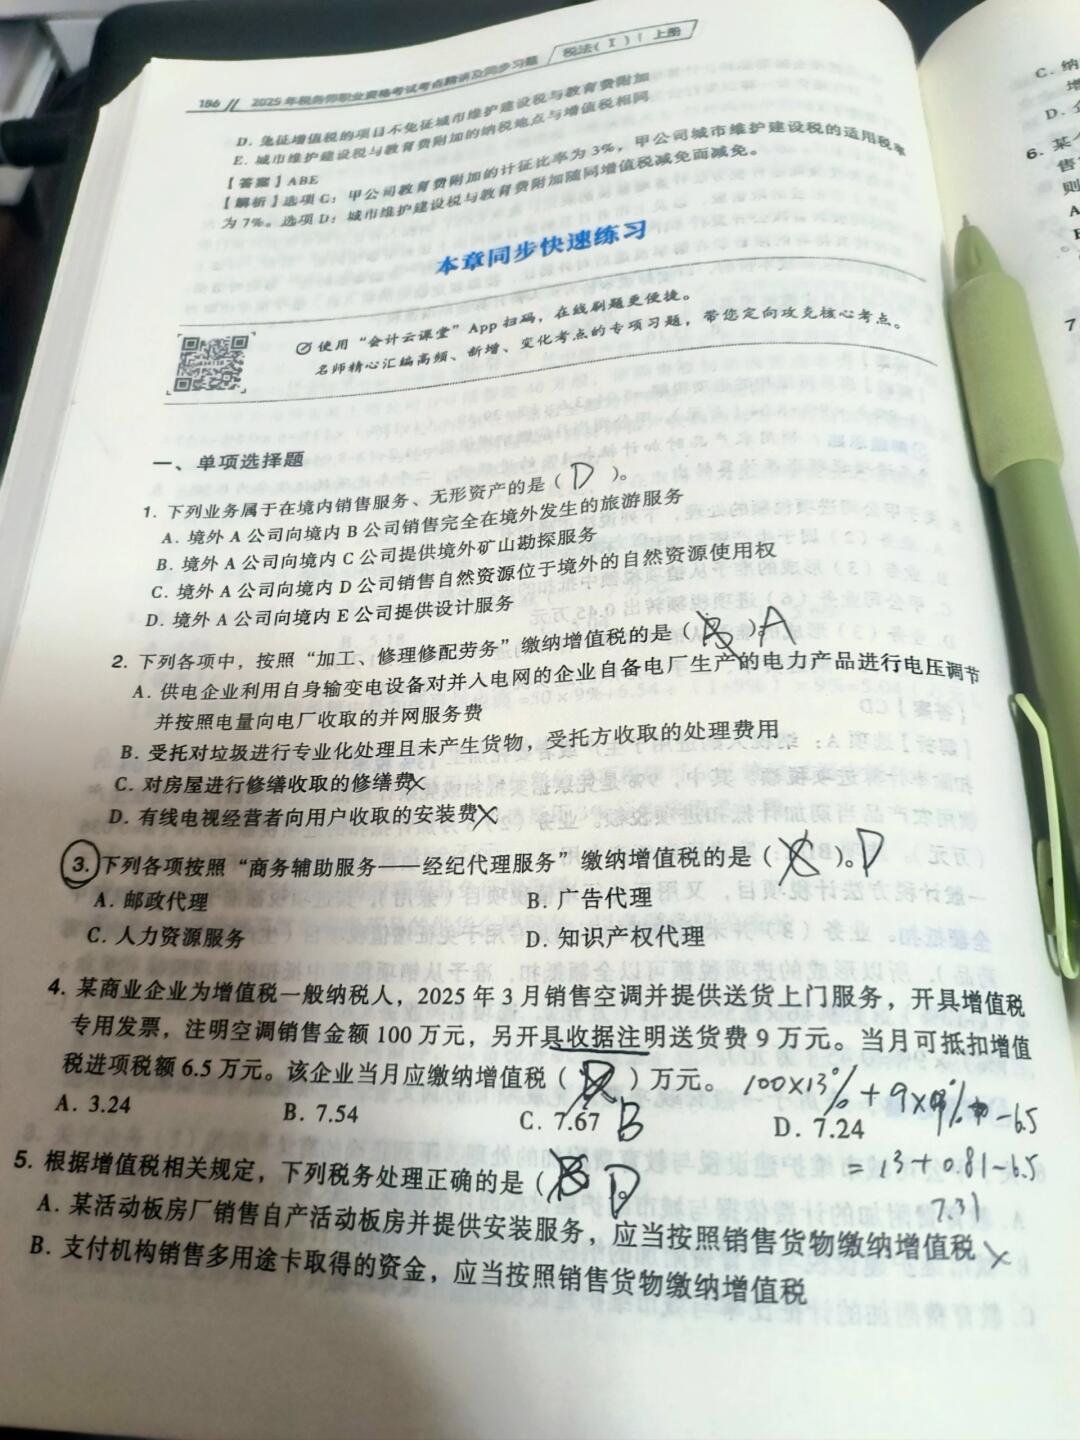 186 // 2025年税务师职业资格考试考点精讲及同步习题 税法(Ⅰ)| 上册
D. 免征增值税的项目不免征城市维护建设税与教育费附加
E. 城市维护建设税与教育费附加的纳税地点与增值税相同
【答案】ABE
【解析】选项C:甲公司教育费附加的计征比率为3%,甲公司城市维护建设税的适用税率
为7%。选项D:城市维护建设税与教育费附加随同增值税减免而减免。
本章同步快速练习
使用“会计云课堂”App扫码,在线刷题更便捷。
名师精心汇编高频、新增、变化考点的专项习题,带您定向攻克核心考点。
一、单项选择题
1. 下列业务属于在境内销售服务、无形资产的是( D )。
A. 境外A公司向境内B公司销售完全在境外发生的旅游服务
B. 境外A公司向境内C公司提供境外矿山勘探服务
C. 境外A公司向境内D公司销售自然资源位于境外的自然资源使用权
D. 境外A公司向境内E公司提供设计服务
2. 下列各项中,按照“加工、修理修配劳务”缴纳增值税的是( B )。A
A. 供电企业利用自身输变电设备对并入电网的企业自备电厂生产的电力产品进行电压调节
并按照电量向电厂收取的并网服务费
B. 受托对垃圾进行专业化处理且未产生货物,受托方收取的处理费用
C. 对房屋进行修缮收取的修缮费×
D. 有线电视经营者向用户收取的安装费×
3. 下列各项按照“商务辅助服务——经纪代理服务”缴纳增值税的是( C )。D
A. 邮政代理 B. 广告代理
C. 人力资源服务 D. 知识产权代理
4. 某商业企业为增值税一般纳税人,2025年3月销售空调并提供送货上门服务,开具增值税
专用发票,注明空调销售金额100万元,另开具收据注明送货费9万元。当月可抵扣增值
税进项税额6.5万元。该企业当月应缴纳增值税( )万元。 100×13%+9×9% -6.5
A. 3.24 B. 7.54 C. 7.67 B D. 7.24
=13+0.81-6.5
5. 根据增值税相关规定,下列税务处理正确的是( B D )。
7.31
A. 某活动板房厂销售自产活动板房并提供安装服务,应当按照销售货物缴纳增值税 ×
B. 支付机构销售多用途卡取得的资金,应当按照销售货物缴纳增值税
C. 纳
增
D. 
6. 某
售
则
A
7